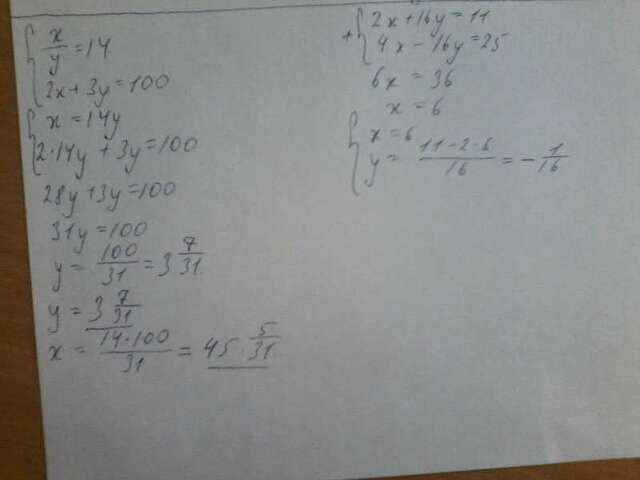 x/y = 14
2x + 3y = 100
x = 14y
2·14y + 3y = 100
28y + 3y = 100
31y = 100
y = 100/31 = 3 7/31
y = 3 7/31
x = 14·100/31 = 45 5/31
+ 2x + 16y = 11
4x - 16y = 25
6x = 36
x = 6
x = 6
y = 11-2·6/16 = - 1/16